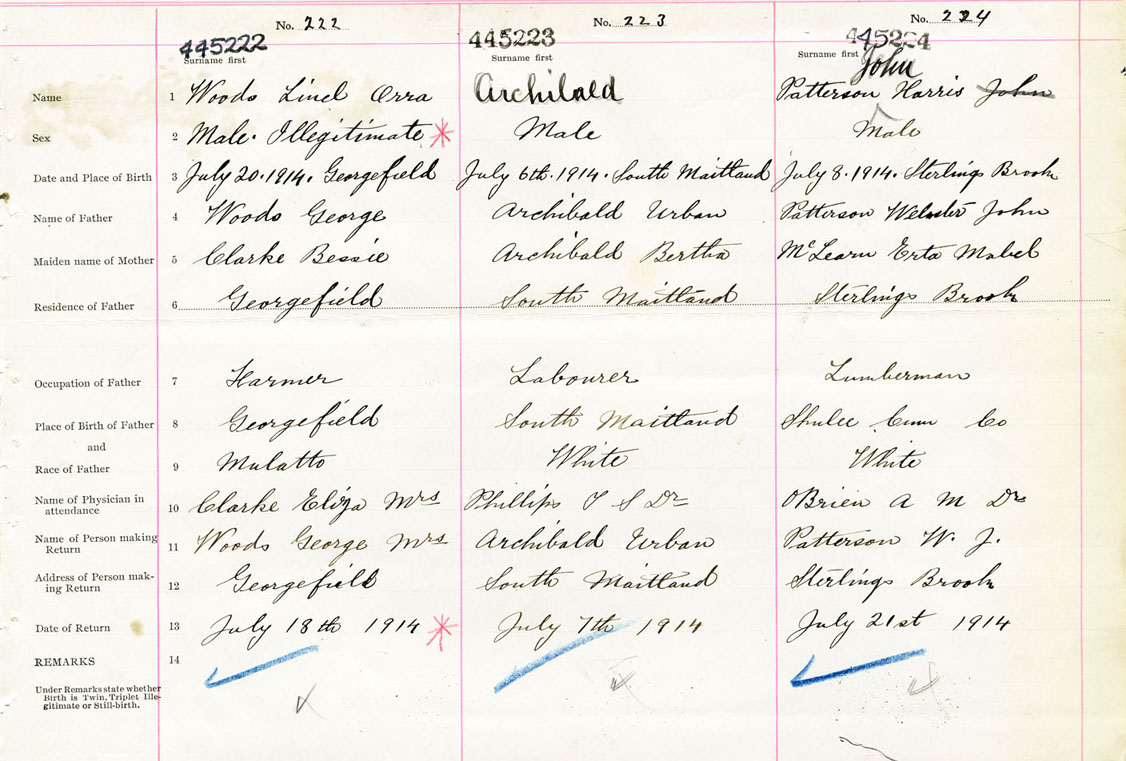 No. 222 No. 223 No. 224
445222 445223 445224
Surname first Surname first Surname first John
Name 1 Woods Linel Orra Archibald Patterson Harris John
Sex 2 Male. Illegitimate * Male Male
Date and Place of Birth 3 July 20. 1914. Georgefield July 6th. 1914. South Maitland July 8. 1914. Sterlings Brook
Name of Father 4 Woods George Archibald Urban Patterson Webster John
Maiden name of Mother 5 Clarke Bessie Archibald Bertha McLearn Erta Mabel
Residence of Father 6 Georgefield South Maitland Sterlings Brook
Occupation of Father 7 Farmer Labourer Lumberman
Place of Birth of Father 8 Georgefield South Maitland Shulee Cum Co
and
Race of Father 9 Mulatto White White
Name of Physician in
attendance 10 Clarke Eliza Mrs Phillips T S Dr OBrien A M Dr
Name of Person making
Return 11 Woods George Mrs Archibald Urban Patterson W. J.
Address of Person mak-
ing Return 12 Georgefield South Maitland Sterlings Brook
Date of Return 13 July 18th 1914 * July 7th 1914 July 21st 1914
REMARKS 14
Under Remarks state whether
Birth is Twin, Triplet Ille-
gitimate or Still-birth.